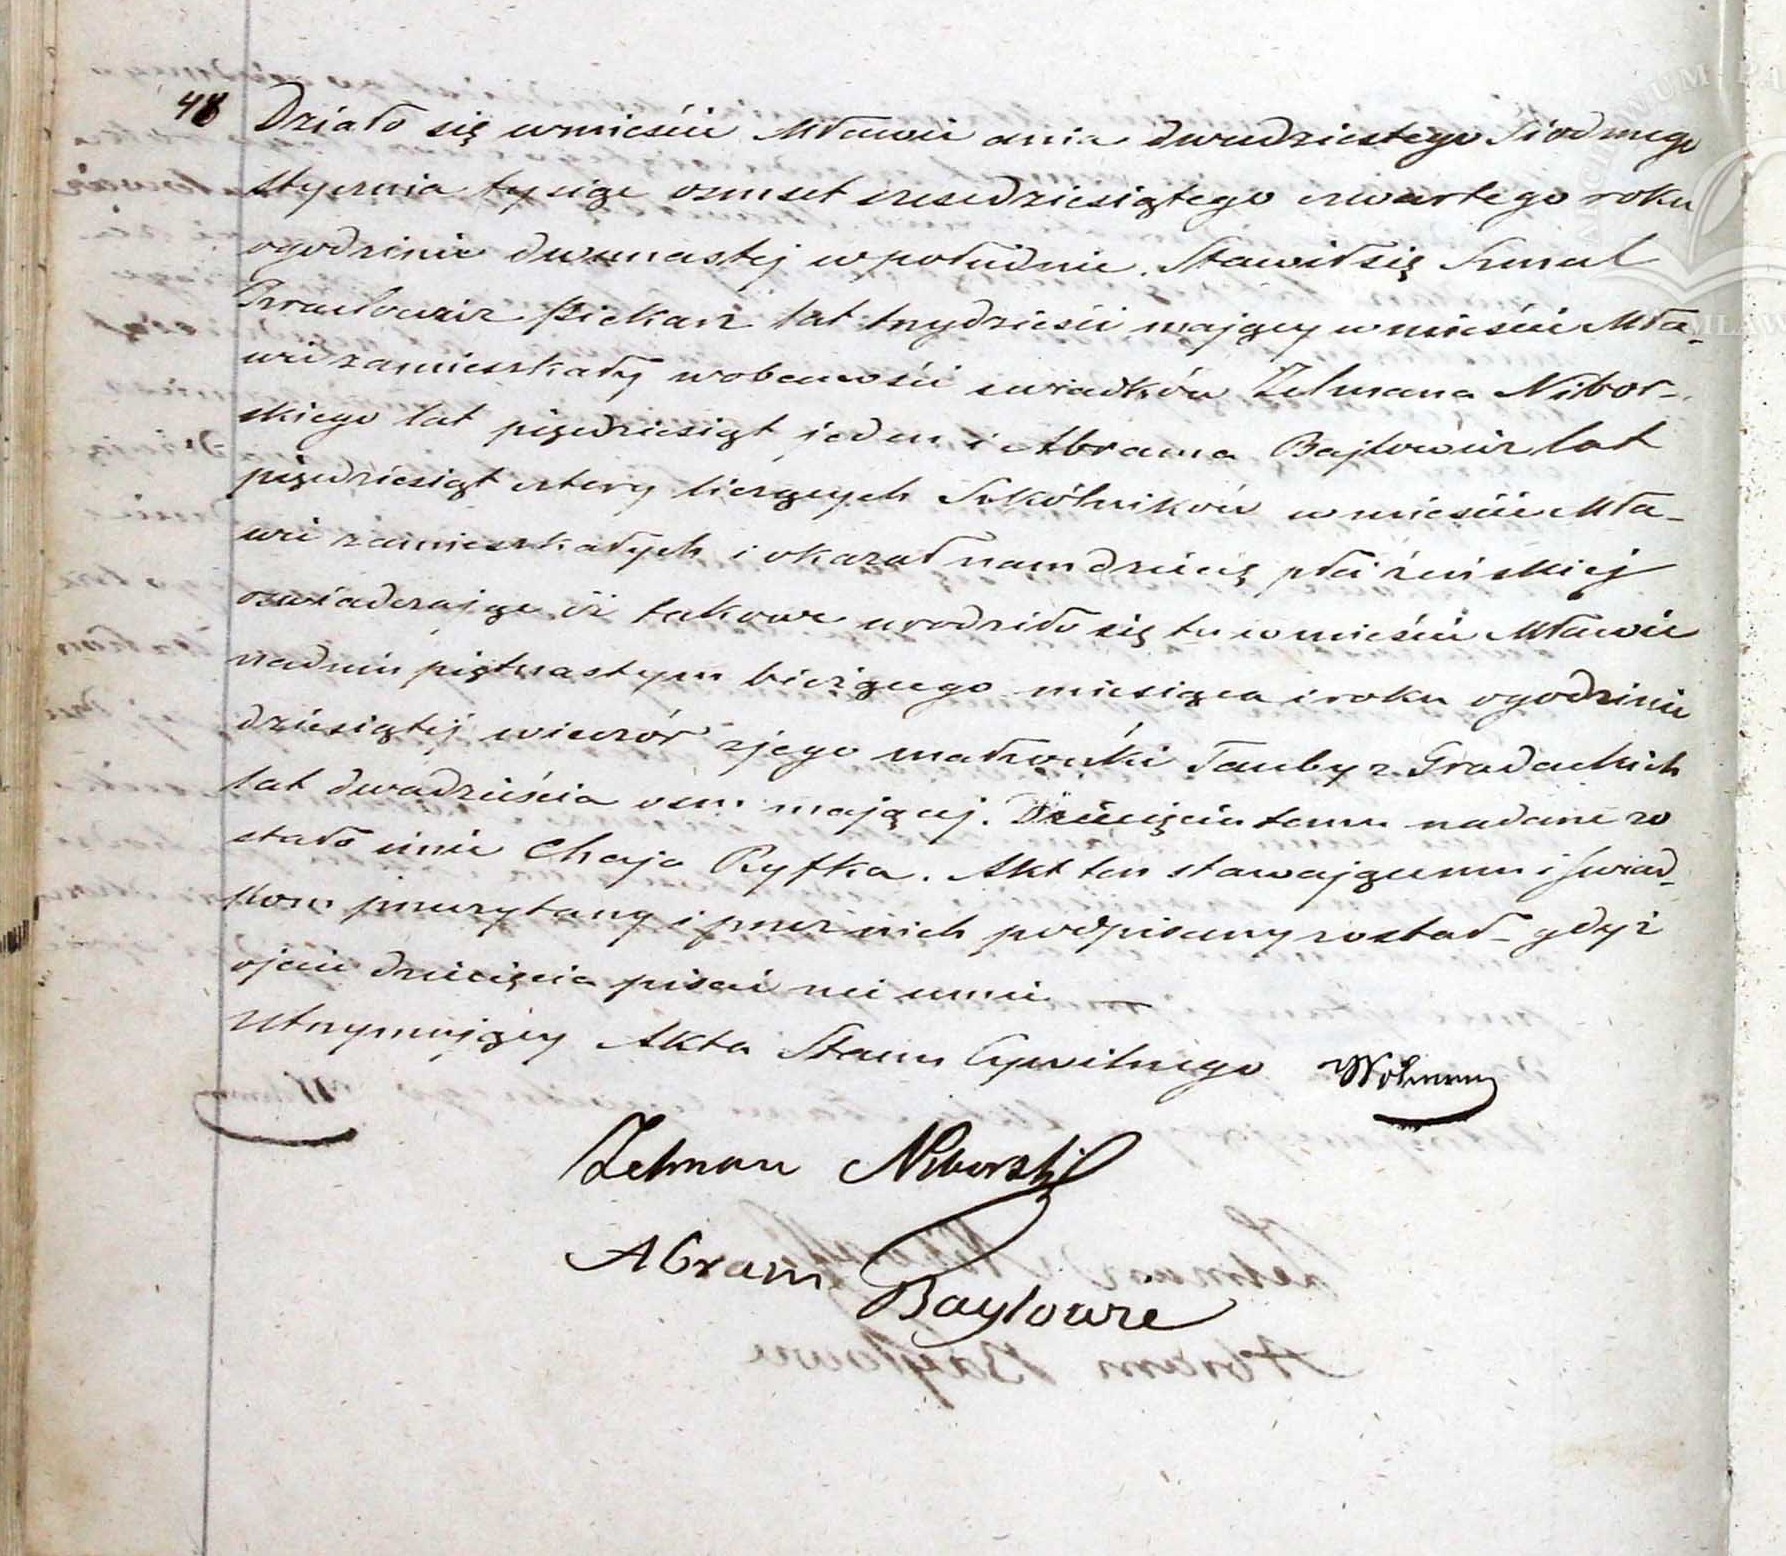 48
Działo się w mieście Mławie dnia dwudziestego Siodmego
Stycznia tysiąc osmset szesedziesiątego czwartego roku
ogodzinie dwunastej w południe. Stawił się
Piekarz lat trzydzieści mający w mieście Mła-
wie zamieszkały w obecności swiadków Zelmana Nibor-
skiego lat pięcdziesiąt jeden i Abrama Bajlowicz lat
pięcdziesiąt cztery liczących Szkólników w mieście Mła-
wie zamieszkałych i okazał nam dziecię płci żeńskiej
oswiadczając iż takowe urodziło się tu w mieście Mławie
na dniu piętnastym bieżącego miesiąca i roku ogodzinie
dziesiątej wieczór z jego małżonki Tauby z Gradackich
lat dwadzieścia osm mającej. Dziecięciu temu nadane zo
stało imie Chaja Ryfka. Akt ten stawającemu i świad-
kom przeczytany i przez nich podpisany został gdyż
ojciec dziecięcia pisać nie umie
Utrzymujący Akta Stanu Cywilnego
Zelman Niborski
Abram Baylowic